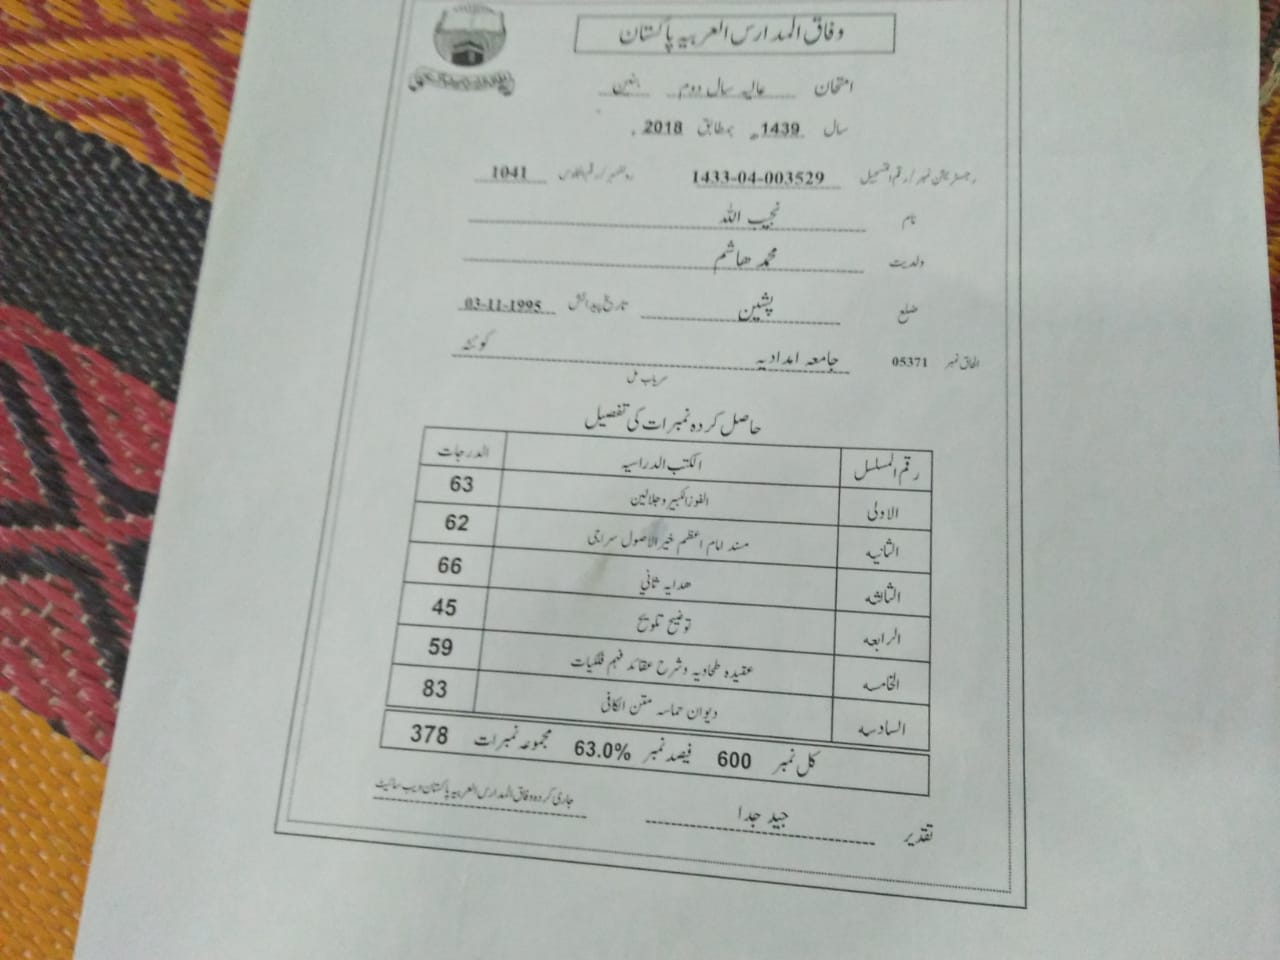 وفاق المدارس العربیہ پاکستان
امتحان عالیہ سال دوم بنین
سال 1439ھ بمطابق 2018ء
رجسٹریشن نمبر/رقم التسجیل 1433-04-003529 رولنمبر/رقم الجلوس 1041
نام نجیب اللہ
ولدیت محمد ھاشم
ضلع پشین تاریخ پیدائش 03-11-1995
الحاق نمبر 05371 جامعہ امدادیہ کوئٹہ
سریاب مل
حاصل کردہ نمبرات کی تفصیل
رقم المسلسل الکتب الدراسیہ الدرجات
الاولی الفوز الکبیر و جلالین 63
الثانیه مسند امام اعظم خیر الاصول سراجی 62
الثالثه ھدایہ ثانی 66
الرابعه توضیح تلویح 45
الخامسه عقیدہ طحاویہ و شرح عقائد فہم فلکیات 59
السادسه دیوان حماسہ متن الکافی 83
کل نمبر 600 فیصد نمبر 63.0% مجموعہ نمبرات 378
تقدیر جید جدا جاری کردہ وفاق المدارس العربیہ پاکستان ویب سائیٹ